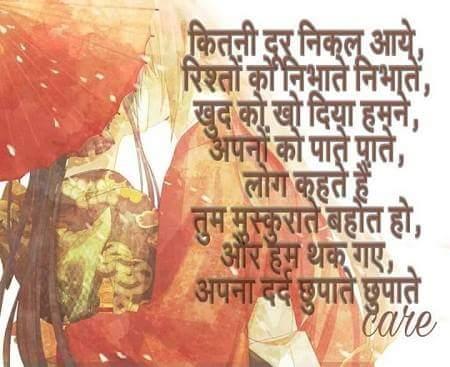 कितनी दूर निकल आये,
रिश्तों को निभाते निभाते,
खुद को खो दिया हमने,
अपनों को पाते पाते,
लोग कहते हैं
तुम मुस्कुराते बहोत हो,
और हम थक गए,
अपना दर्द छुपाते छुपाते
care